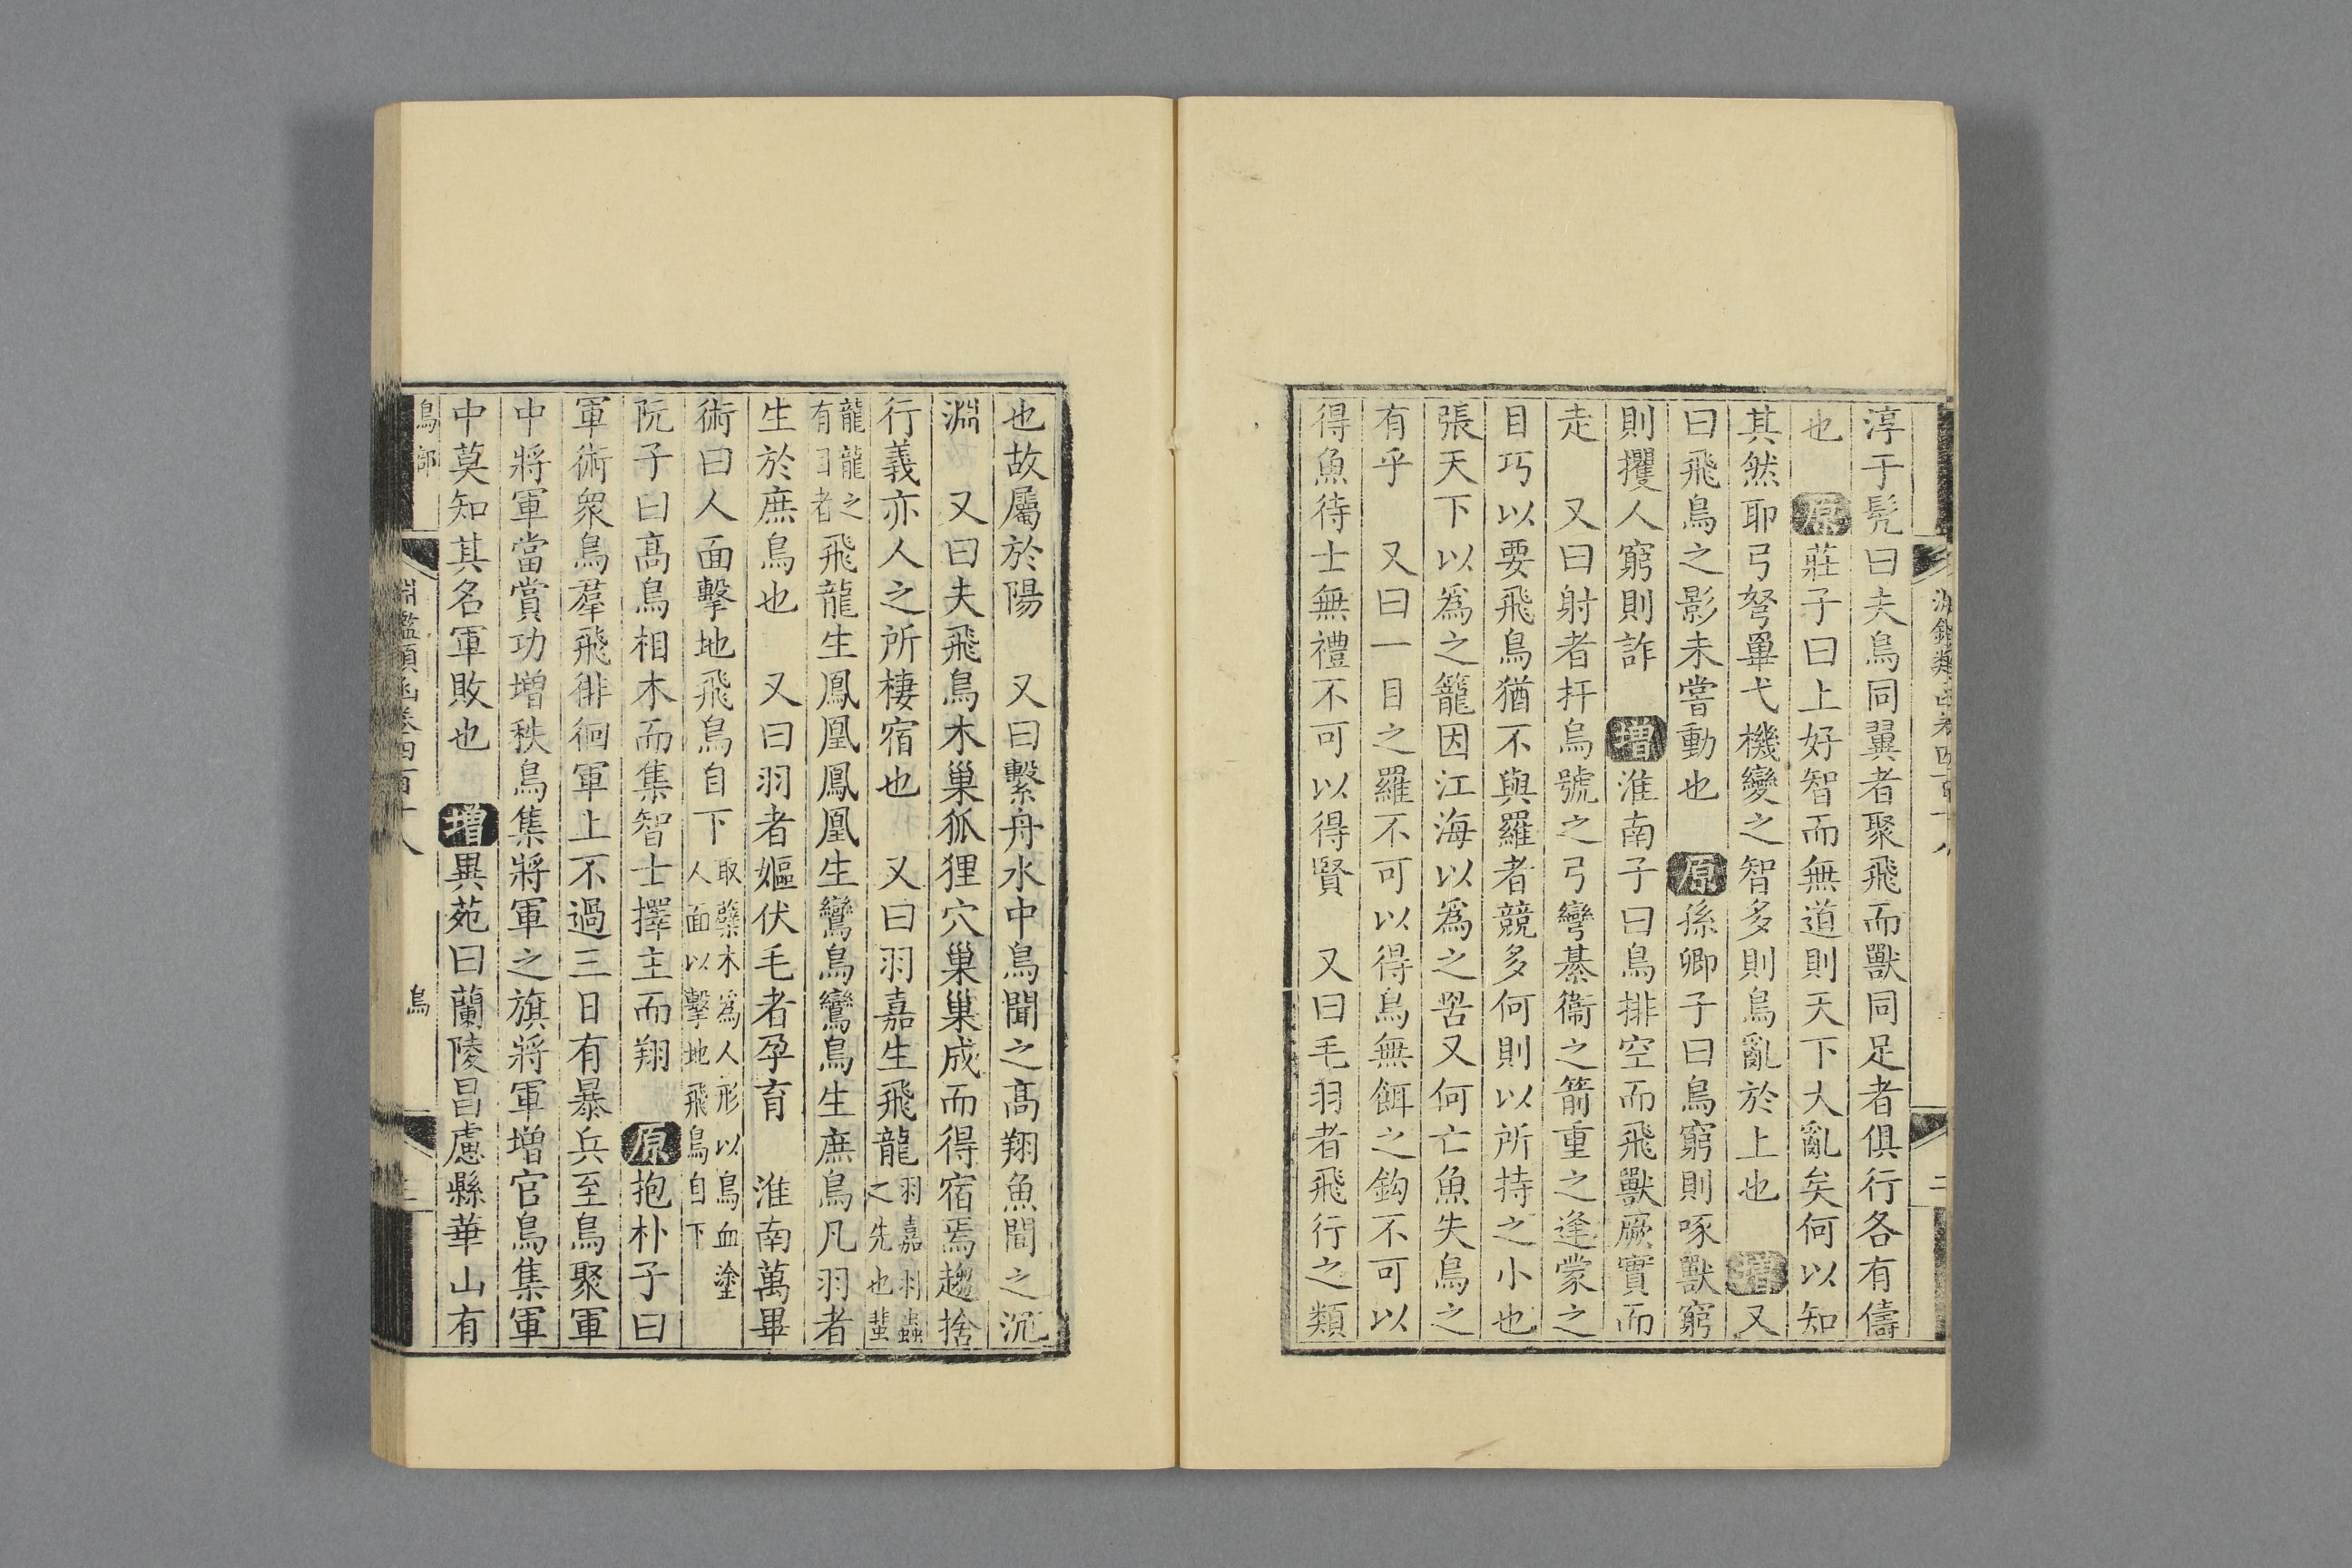 淳于髡曰夫鳥同翼者聚飛而獸同足者俱行各有儔
也 原莊子曰上好智而無道則天下大亂矣何以知
其然耶弓弩畢弋機變之智多則鳥亂於上也 增又
曰飛鳥之影未嘗動也 原孫卿子曰鳥窮則啄獸窮
則攫人窮則詐 增淮南子曰鳥排空而飛獸蹶實而
走 又曰射者扜烏號之弓彎綦衞之箭重之逢蒙之
目巧以要飛鳥猶不與羅者競多何則以所持之小也
張天下以爲之籠因江海以爲之罟又何亡魚失鳥之
有乎 又曰一目之羅不可以得鳥無餌之鈎不可以
得魚待士無禮不可以得賢 又曰毛羽者飛行之類
也故屬於陽 又曰繫舟水中鳥聞之高翔魚聞之沉
淵 又曰夫飛鳥木巢狐狸穴巢巢成而得宿焉趨捨
行義亦人之所棲宿也 又曰羽嘉生飛龍羽嘉羽蟲之先也蜚
龍龍之有羽者飛龍生鳳凰鳳凰生鸞鳥鸞鳥生庶鳥凡羽者
生於庶鳥也 又曰羽者嫗伏毛者孕育 淮南萬畢
術曰人面擊地飛鳥自下取蘖木爲人形以鳥血塗人面以擊地飛鳥自下
阮子曰高鳥相木而集智士擇主而翔 原抱朴子曰
軍術衆鳥羣飛徘徊軍上不過三日有暴兵至鳥聚軍
中將軍當賞功增秩鳥集將軍之旗將軍增官鳥集軍
中莫知其名軍敗也 增異苑曰蘭陵昌慮縣華山有
鳥部 淵鑑類函卷四百十八 鳥